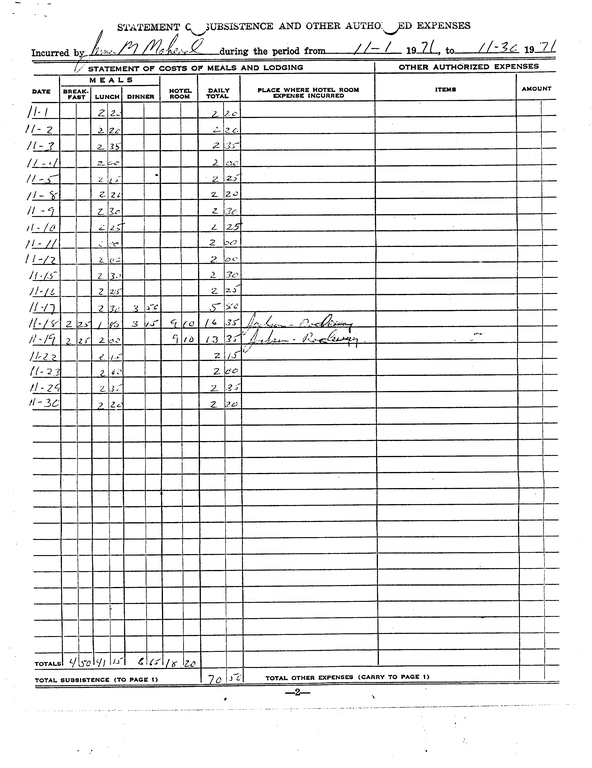 STATEMENT O SUBSISTENCE AND OTHER AUTHO ED EXPENSES
Incurred by M during the period from 11-1 1971, to 11-30 1971
STATEMENT OF COSTS OF MEALS AND LODGING OTHER AUTHORIZED EXPENSES
MEALS
DATE BREAK-FAST LUNCH DINNER HOTEL ROOM DAILY TOTAL PLACE WHERE HOTEL ROOM EXPENSE INCURRED ITEMS AMOUNT
11-1 2 20 2 20
11-2 2 20 2 20
11-3 2 35 2 35
11-4 2 00 2 00
11-5 2 25 2 25
11-8 2 20 2 20
11-9 2 30 2 30
11-10 2 25 2 25
11-11 2 00 2 00
11-12 2 00 2 00
11-15 2 30 2 30
11-16 2 25 2 25
11-17 2 30 3 50 5 80
11-18 2 25 1 85 3 15 9 10 16 35
11-19 2 25 2 00 9 10 13 35
11-22 2 15 2 15
11-23 2 00 2 00
11-29 2 35 2 35
11-30 2 20 2 20
TOTALS 4 50 41 15 6 65 18 20
TOTAL SUBSISTENCE (TO PAGE 1) 70 50 TOTAL OTHER EXPENSES (CARRY TO PAGE 1)
—2—